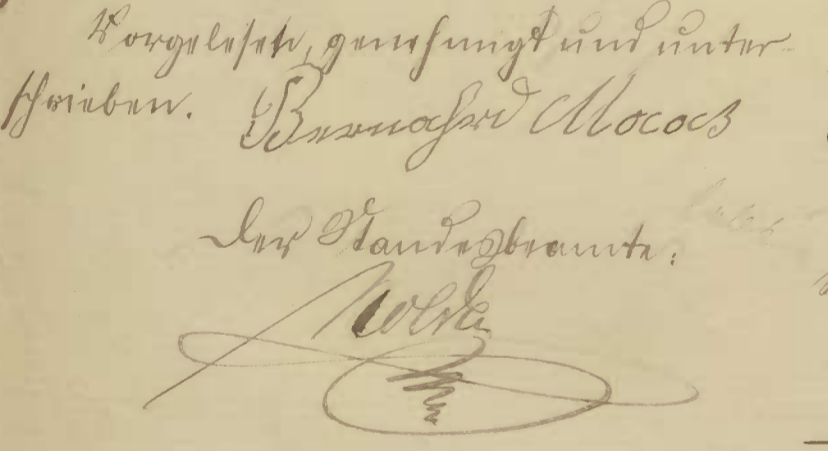 Vorgelesen, genehmigt und unter-
schrieben. Bernahrd
Der Standesbeamte: